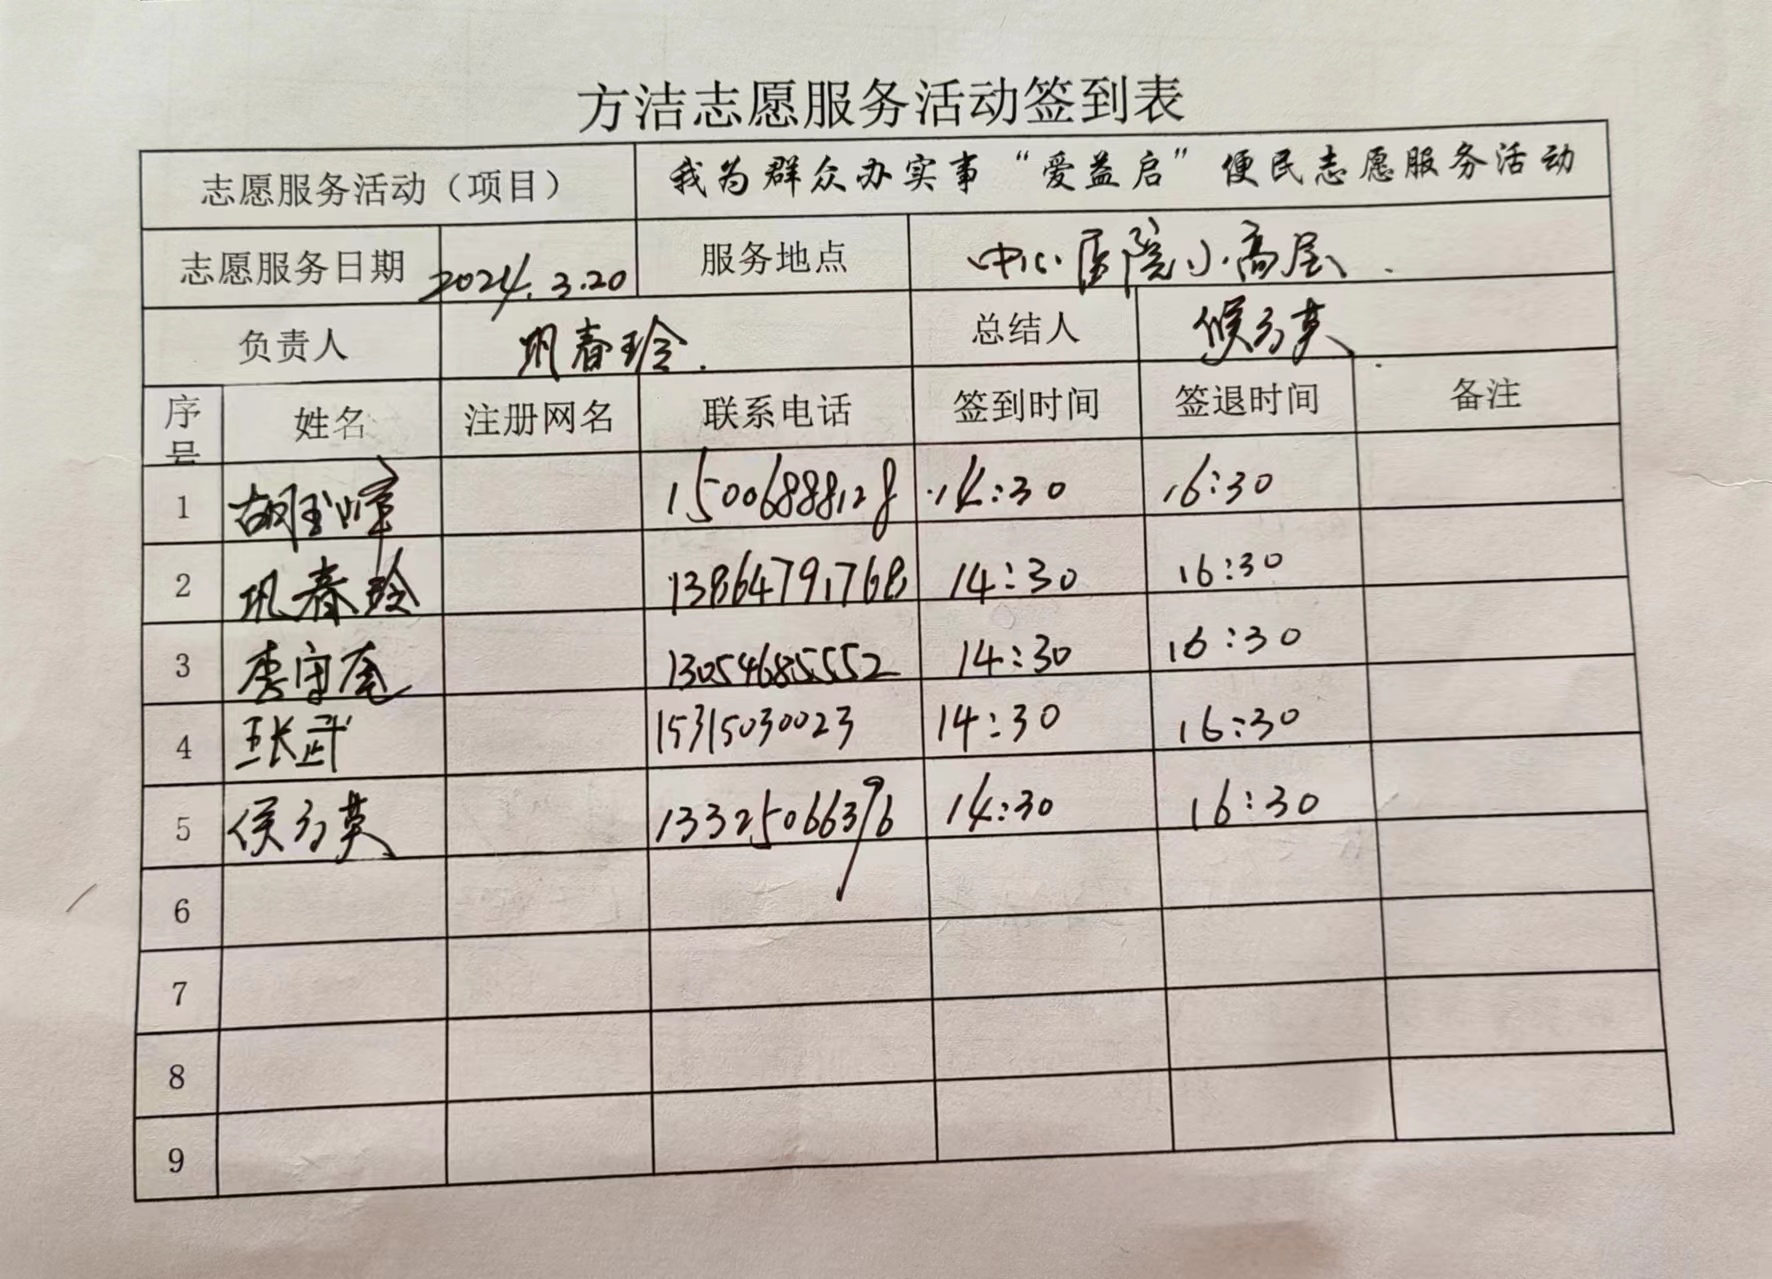 方洁志愿服务活动签到表
志愿服务活动（项目） 我为群众办实事“爱益启”便民志愿服务活动
志愿服务日期 2024.3.20 服务地点 中心医院小高层
负责人 巩春玲 总结人 侯方英
序号 姓名 注册网名 联系电话 签到时间 签退时间 备注
1 胡玉峰 15006888128 14:30 16:30
2 巩春玲 13864791768 14:30 16:30
3 李守奎 13054685552 14:30 16:30
4 王长武 15315030023 14:30 16:30
5 侯方英 13325066376 14:30 16:30
6
7
8
9